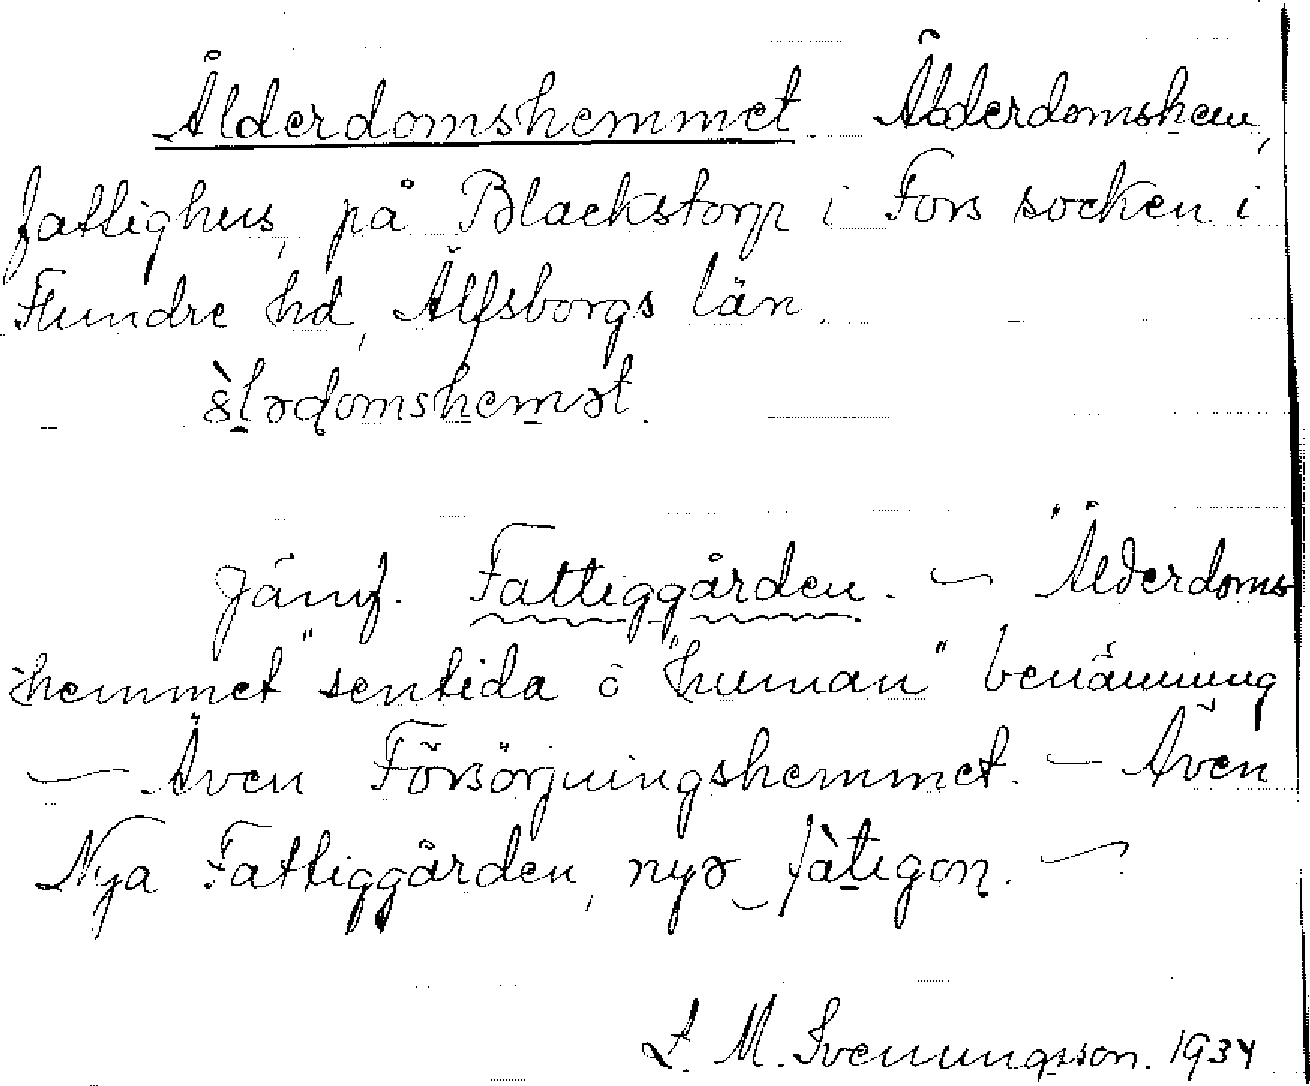 Ålderdomshemmet. Ålderdomshem,
fattighus, på Blackstorp i Fors socken i
Flundre hd, Älfsborgs län.
ålədomshemət.
Jämf. Fattiggården. — "Ålderdoms
hemmet" sentida o "human" benämning
— Även Försörjningshemmet. — Även
Nya Fattiggården, nyə fàtigoɳ. —
L. M. Svenungsson. 1934